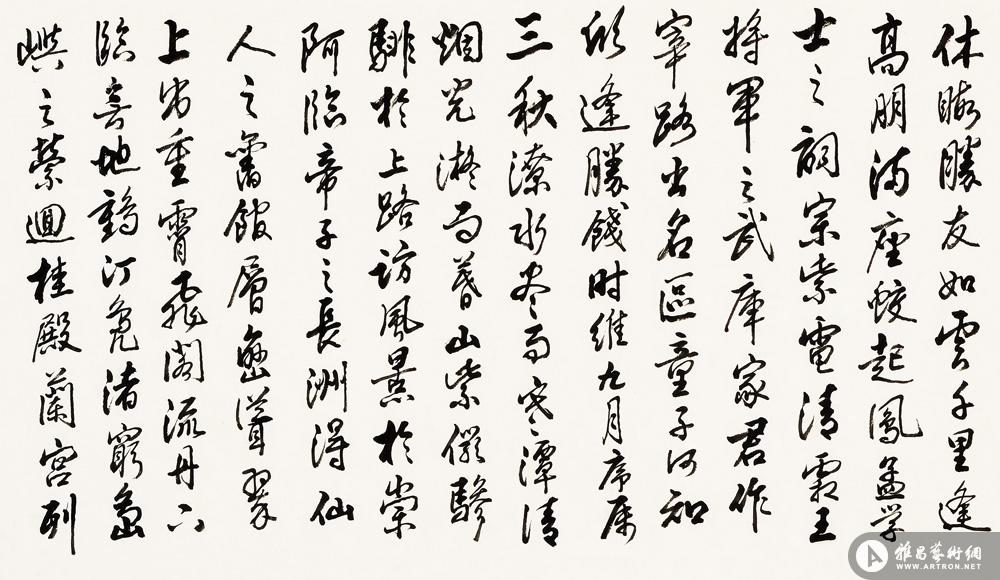 休暇勝友如雲千里逢
高朋满座蛟起鳳孟学
士之詞宗紫電清霜王
将軍之武庫家君作
宰路出名區童子何知
躬逢勝餞时維九月序属
三秋潦水尽而寒潭清
烟光凝而暮山紫儼驂
騑於上路訪風景於崇
阿臨帝子之長洲得仙
人之舊館層巒聳翠
上出重霄飛閣流丹下
臨無地鶴汀鳧渚窮島
嶼之縈迴桂殿蘭宫列
雅昌藝術網
WWW.ARTRON.NET